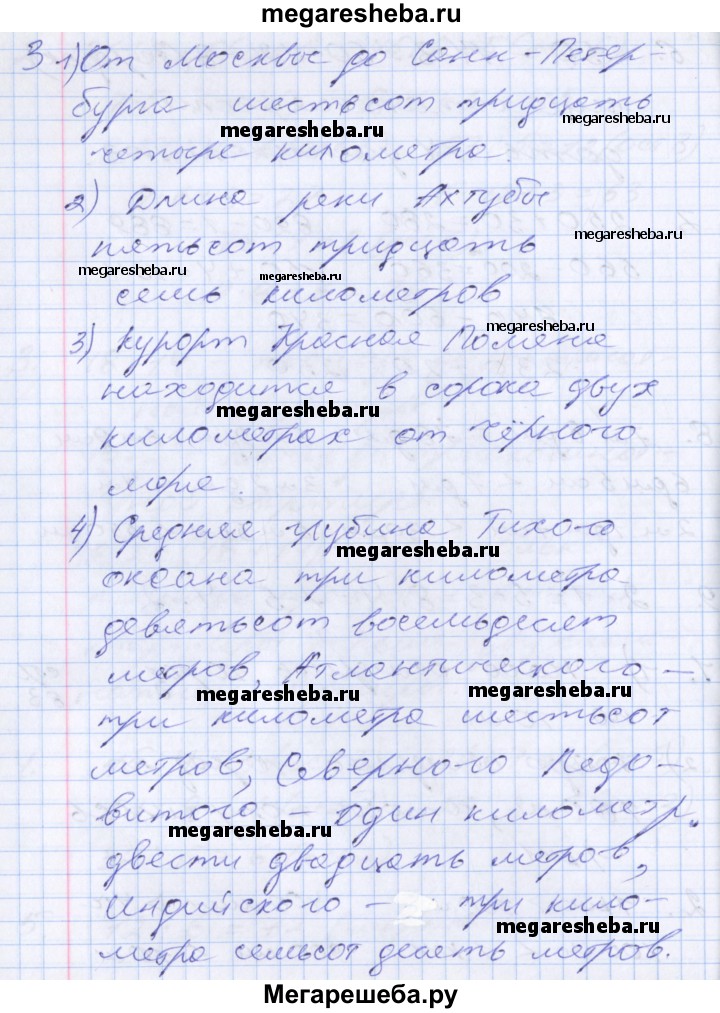 megaresheba.ru
3 1) От Москвы до Санк-Петер-
бурга шестьсот тридцать
megaresheba.ru
megaresheba.ru
четыре километра.
2) Длина реки Ахтубы
пятьсот тридцать
megaresheba.ru
megaresheba.ru
семь километров
megaresheba.ru
3) курорт Красная Поляна
находится в сорока двух
megaresheba.ru
километрах от Чёрного
моря.
4) Средняя глубина Тихого
megaresheba.ru
океана три километра
девятьсот восемьдесят
метров, Атлантического –
megaresheba.ru
megaresheba.ru
три километра шестьсот
метров, Северного Ледо-
витого – один километр
megaresheba.ru
двести двадцать метров,
Индийского – три кило-
megaresheba.ru
метра семьсот десять метров.
Мегарешеба.ру